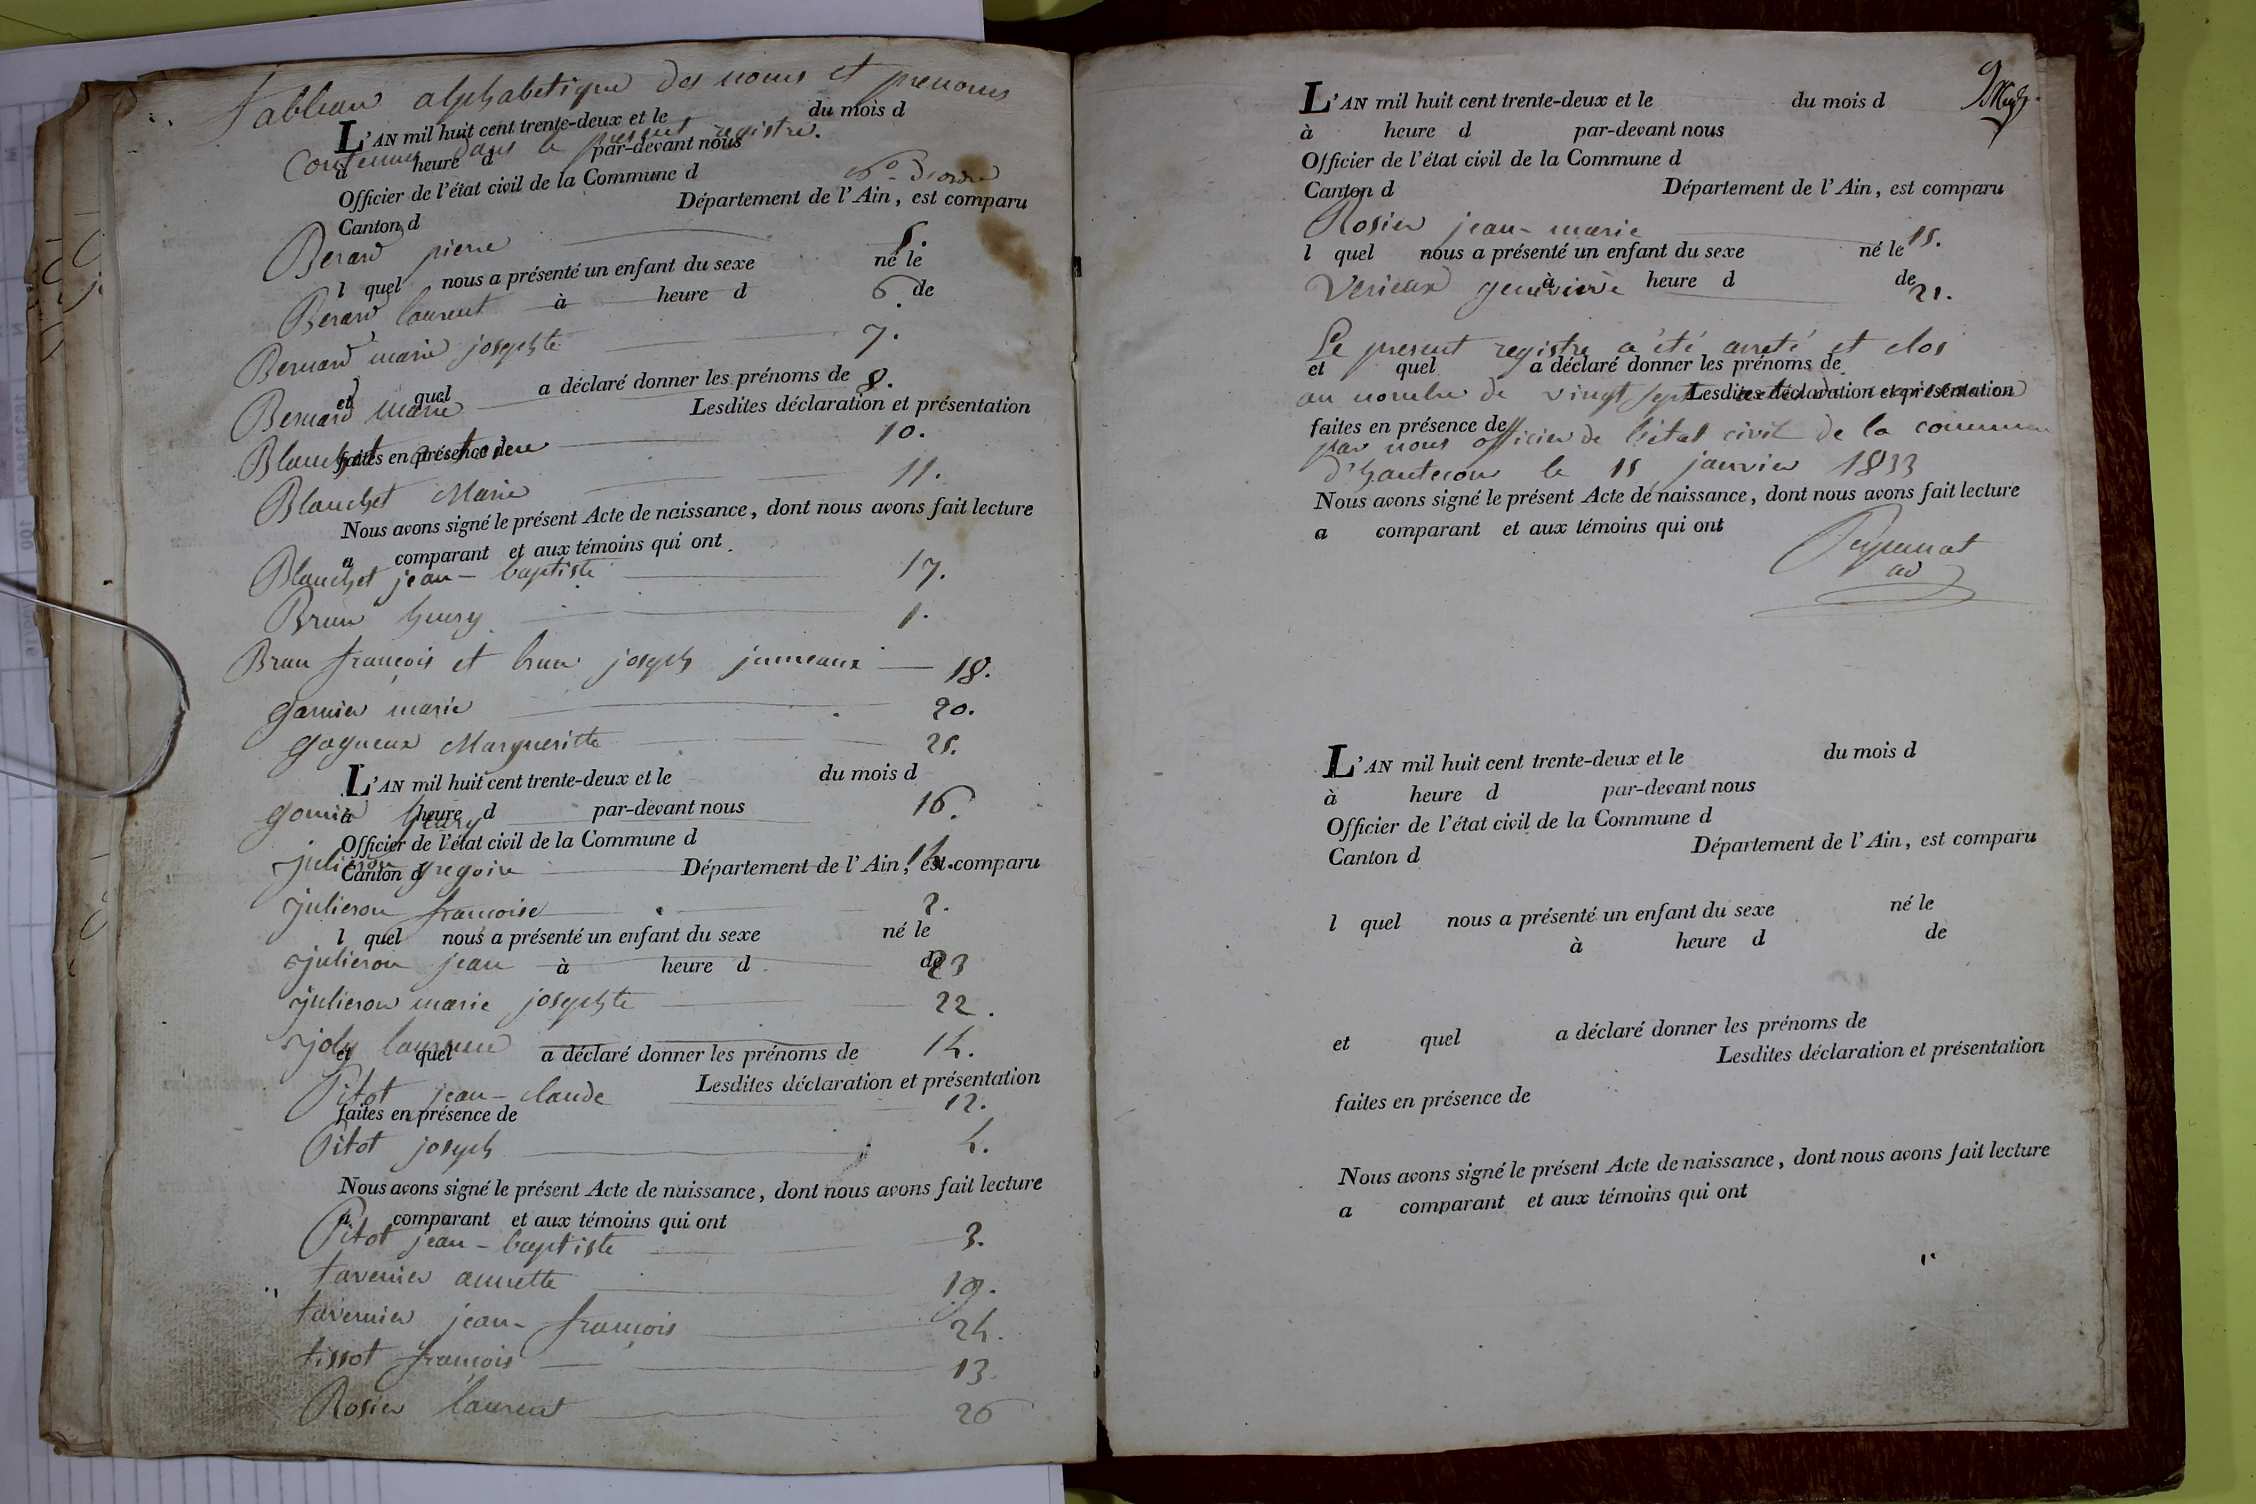 Tableau alphabetique des noms et prenoms
L'AN mil huit cent trente-deux et le du mois d
contenus dans le present registre.
à heure d par-devant nous
Officier de l'état civil de la Commune d
No. d'ordre
Canton d Département de l'Ain, est comparu
Berard pierre 5.
l quel nous a présenté un enfant du sexe né le
Berard laurent 6.
à heure d de
Bernard marie josephte 7.
et quel a déclaré donner les prénoms de
Bernard marie 8.
Lesdites déclaration et présentation
Blanchet 10.
faites en présence de
Blanchet Marie 11.
Nous avons signé le présent Acte de naissance, dont nous avons fait lecture
a comparant et aux témoins qui ont
Blanchet jean-baptiste 17.
Brun henry 1.
Brun françois et brun joseph jumeaux 18.
garnier marie 20.
gogueux Margueritte 25.
L'AN mil huit cent trente-deux et le du mois d
à heure d par-devant nous
henry 16.
Officier de l'état civil de la Commune d
julieron gregoire
Canton d Département de l'Ain, est comparu
julieron francoise 2.
l quel nous a présenté un enfant du sexe né le
julieron jean 23
à heure d de
julieron marie josephte 22.
joly 14.
et quel a déclaré donner les prénoms de
Lesdites déclaration et présentation
Pitot jean-claude 12.
faites en présence de
Pitot joseph 4.
Nous avons signé le présent Acte de naissance, dont nous avons fait lecture
a comparant et aux témoins qui ont
Pitot jean-baptiste 3.
tavernier annette 19.
tavernier jean-françois 24.
tissot françois 13.
Rosier laurent 26
L'AN mil huit cent trente-deux et le du mois d
à heure d par-devant nous
Officier de l'état civil de la Commune d
Canton d Département de l'Ain, est comparu
Rosier jean-marie 15.
l quel nous a présenté un enfant du sexe né le
à heure d de
genevieve 21.
Le present registre a été arreté et clos
et quel a déclaré donner les prénoms de
au nombre de vingt sept
Lesdites déclaration et présentation
faites en présence de
par nous officier de l'état civil de la commune
d'hautecour le 15 janvier 1833
Nous avons signé le présent Acte de naissance, dont nous avons fait lecture
a comparant et aux témoins qui ont
L'AN mil huit cent trente-deux et le du mois d
à heure d par-devant nous
Officier de l'état civil de la Commune d
Canton d Département de l'Ain, est comparu
l quel nous a présenté un enfant du sexe né le
à heure d de
et quel a déclaré donner les prénoms de
Lesdites déclaration et présentation
faites en présence de
Nous avons signé le présent Acte de naissance, dont nous avons fait lecture
a comparant et aux témoins qui ont